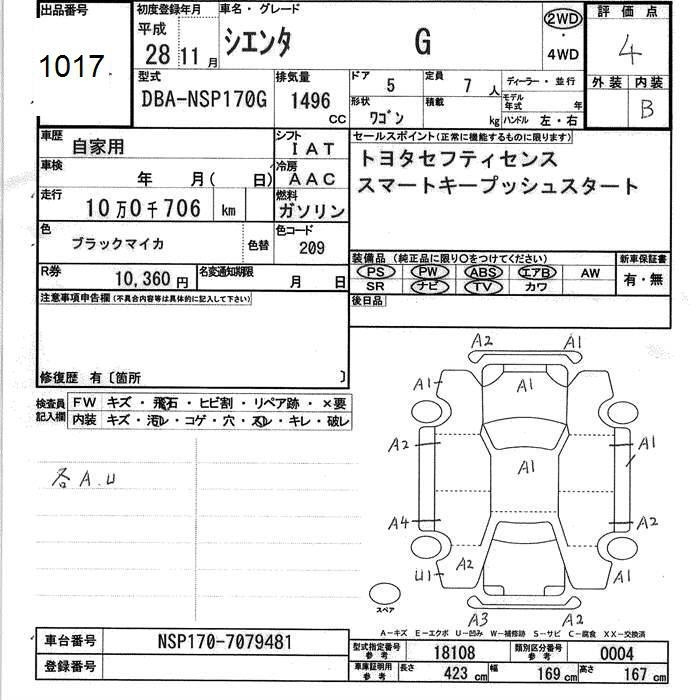 出品番号
1017.
初度登録年月
平成
28 11 月
車名・グレード
シエンタ G
2WD
・
4WD
評価点
4
外装 内装
B
型式
DBA-NSP170G
排気量
1496
CC
ドア
5
定員
7 人
形状
ワゴン
積載
kg
ディーラー・並行
モデル年式 年
ハンドル 左・右
車歴
自家用
シフト
IAT
車検
年 月( 日)
冷房
AAC
走行
10万0千706 km
燃料
ガソリン
色
ブラックマイカ
色替
色コード
209
R券
10,360 円
名変通知期限
月 日
セールスポイント(正常に機能するものに限ります)
トヨタセフティセンス
スマートキープッシュスタート
装備品(純正品に限り○をつけてください)
PS PW ABS エアB AW
SR ナビ TV カワ
新車保証書
有・無
後日品
注意事項申告欄(不具合内容等は具体的に記入して下さい)
修復歴 有〔箇所 〕
検査員
記入欄
FW キズ・飛石・ヒビ割・リペア跡・×要
内装 キズ・汚レ・コゲ・穴・スレ・キレ・破レ
各A.U
A2 A1
A1 A1 A1
A2 A1 A1
A4 A2
U1 A2 A1
A3 A2
スペア
A−キズ E−エクボ U−凹み W−補修跡 S−サビ C−腐食 XX−交換済
車台番号
NSP170-7079481
登録番号
型式指定番号
参考
18108
類別区分番号
参考
0004
車庫証明用
参考
長さ 423 cm 幅 169 cm 高さ 167 cm